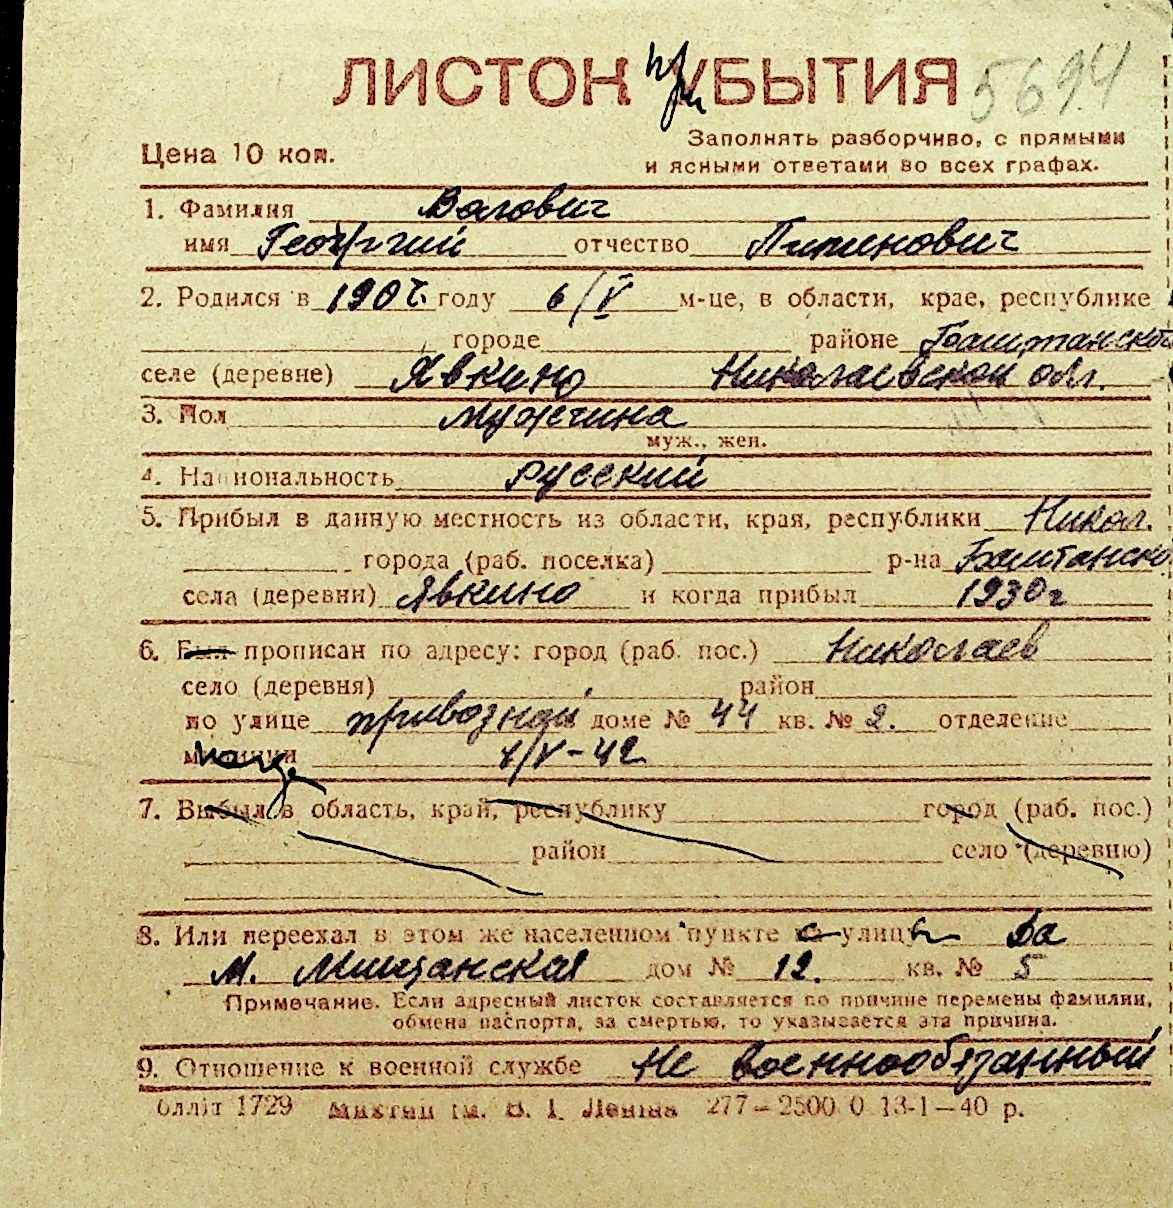 ЛИСТОК при УБЫТИЯ 5694
Цена 10 коп.
Заполнять разборчиво, с прямыми
и ясными ответами во всех графах.
1. Фамилия Волович
имя Георгий отчество Пименович
2. Родился в 1902. году 6/V м-це, в области, крае, республике
городе районе Баштанской
селе (деревне) Явкино Николаевской обл.
3. Пол мужчина
муж., жен.
4. Национальность русский
5. Прибыл в данную местность из области, края, республики Никол.
города (раб. поселка) р-на Баштанско
села (деревни) Явкино и когда прибыл 1930г
6. Был прописан по адресу: город (раб. пос.) Николаев
село (деревня) район
по улице привозной доме № 44 кв. № 2. отделение
милиции /V-42
7. Выбыл в область, край, республику город (раб. пос.)
район село (деревню)
8. Или переехал в этом же населенном пункте с улицы
М. Мищанская дом № 12. кв. № 5
Примечание. Если адресный листок составляется по причине перемены фамилии,
обмена паспорта, за смертью, то указывается эта причина.
9. Отношение к военной службе Не военнообязанный
1729 ім. В. І. Леніна 277—2500 0 13-1—40 р.